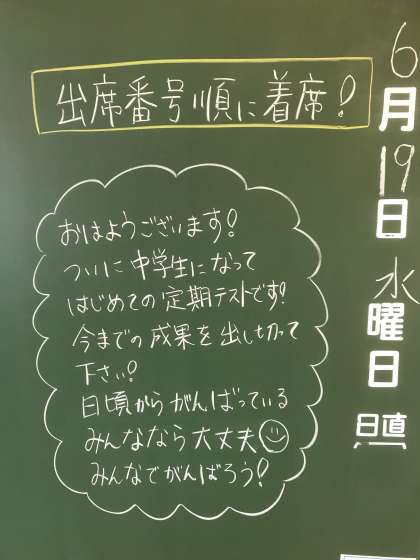 出席番号順に着席!
おはようございます!
ついに中学生になって
はじめての定期テストです!
今までの成果を出し切って
下さい!
日頃からがんばっている
みんななら大丈夫
みんなでがんばろう!
6月19日水曜日
日直